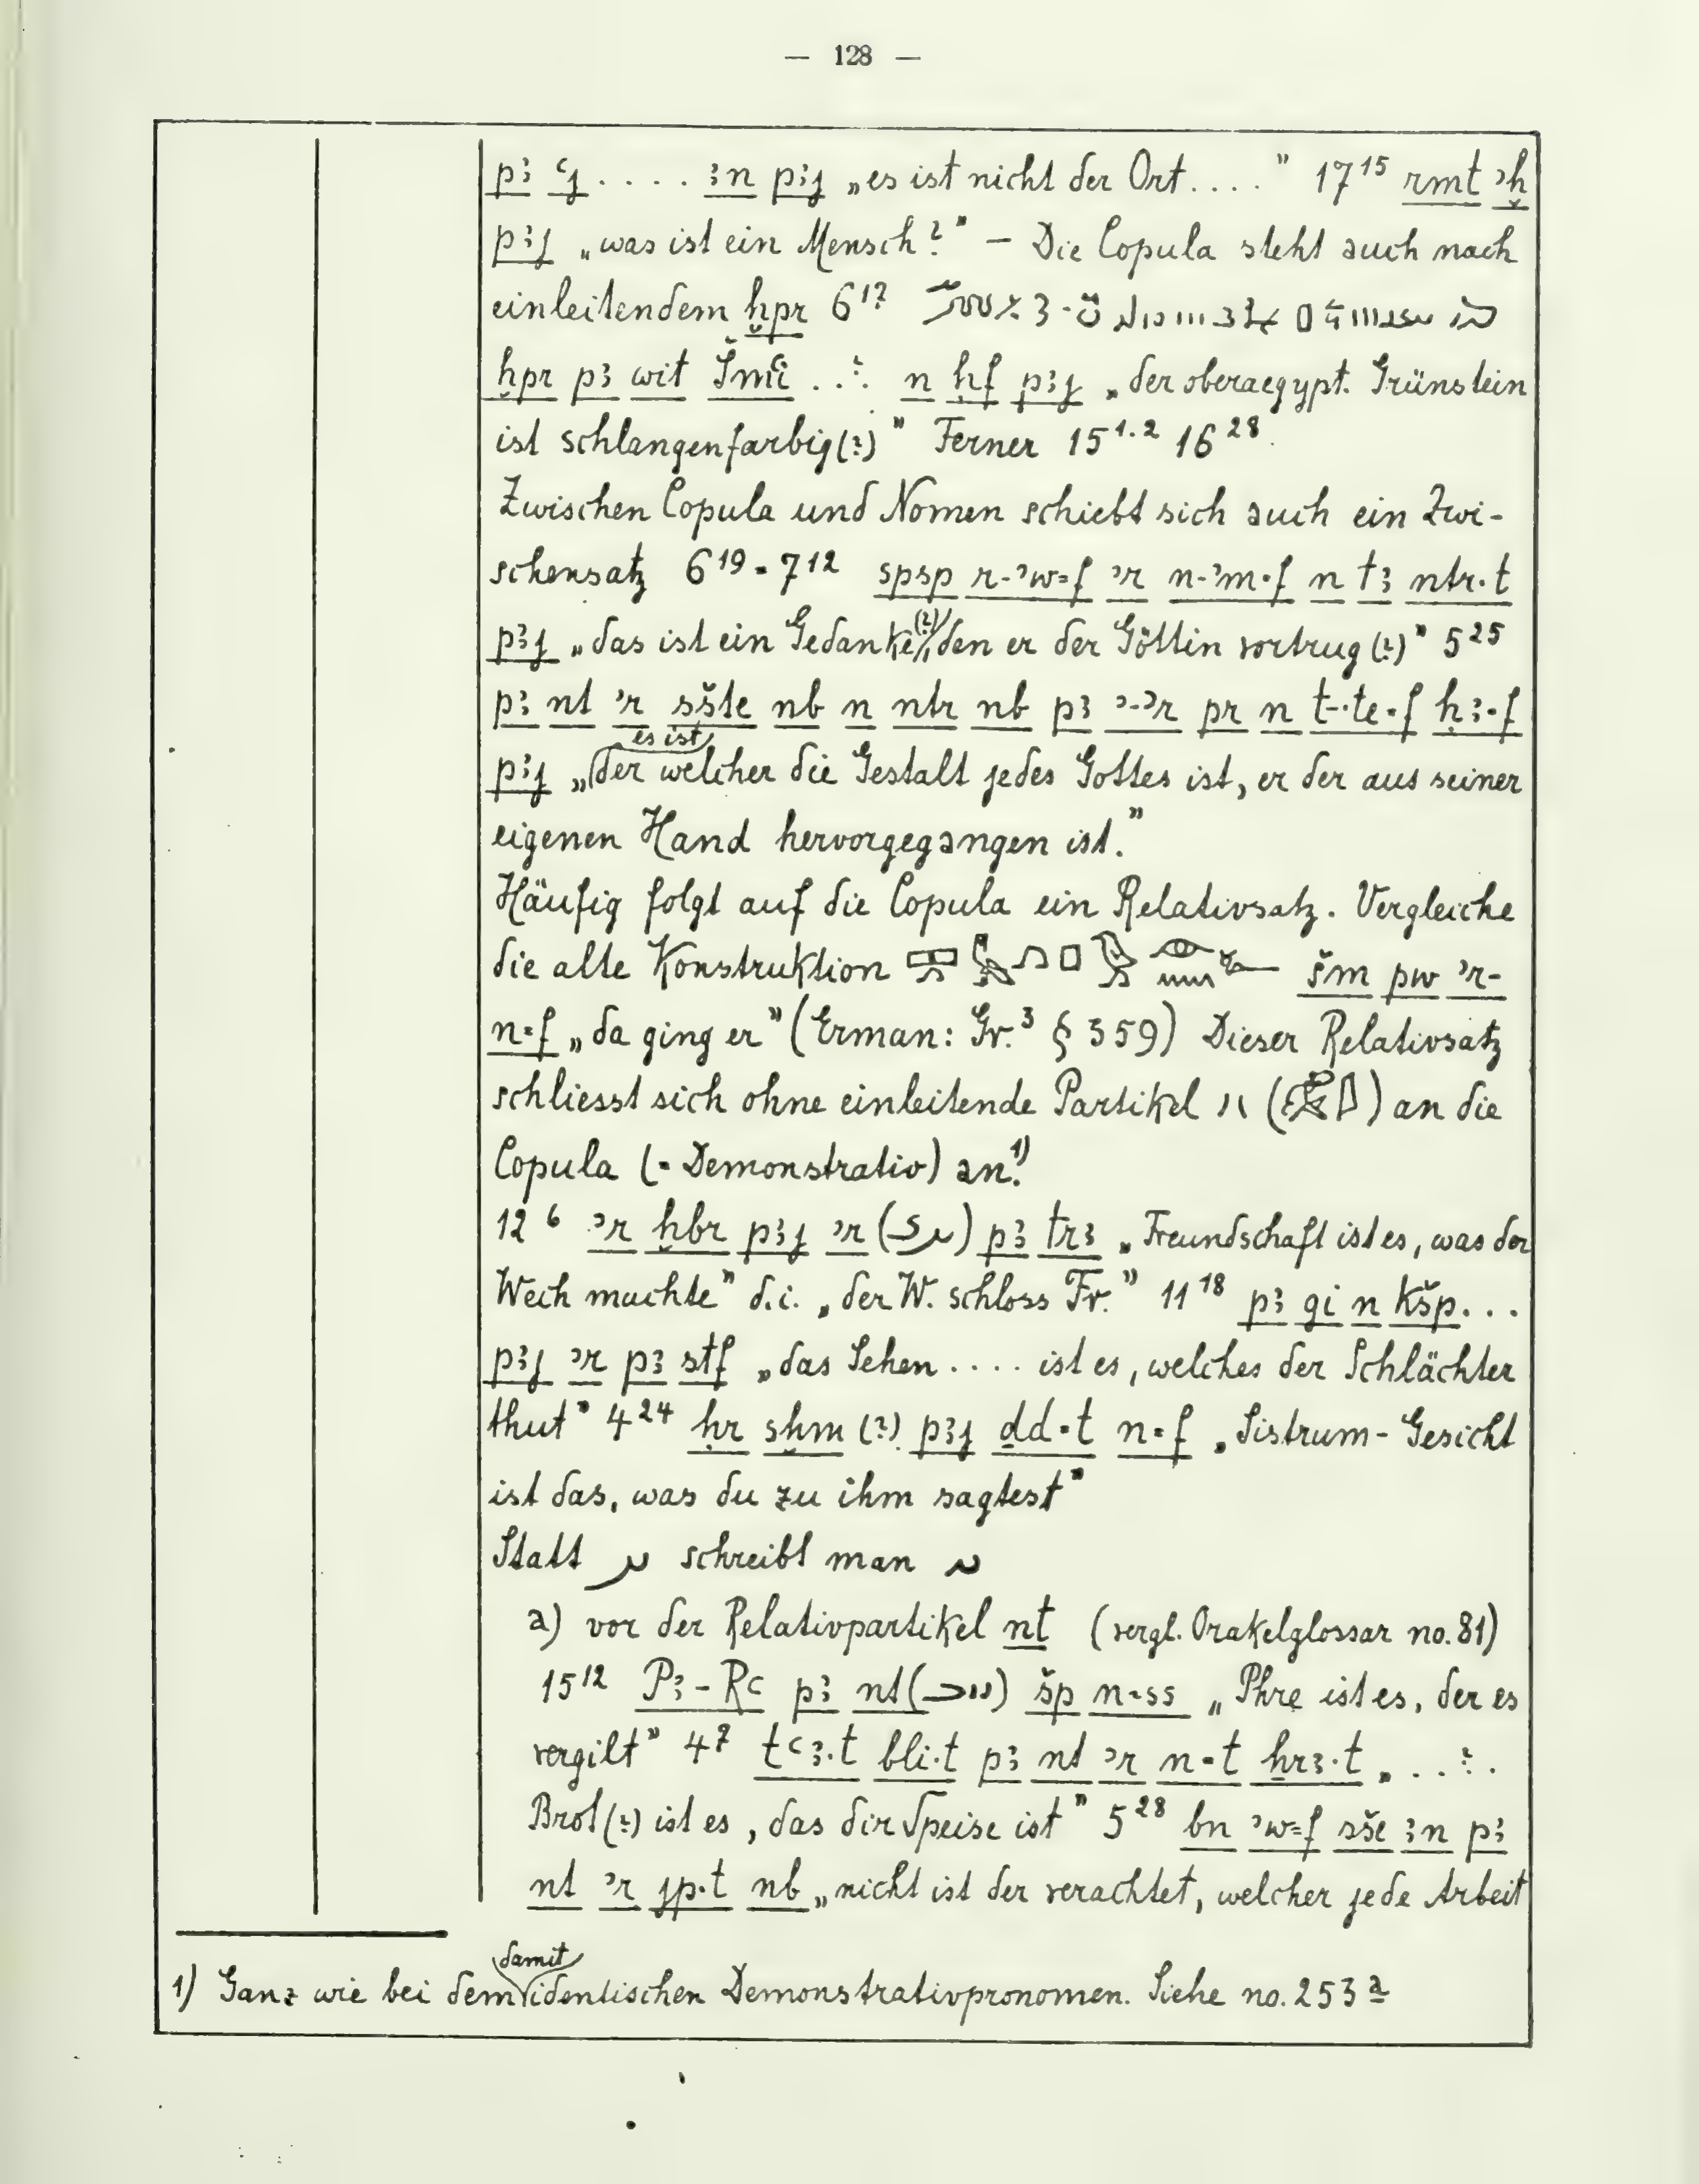 — 128 —
pꜣ ꜥj .... ꜣn pꜣj „es ist nicht der Ort....” 17¹⁵ rmt ʾḫ
pꜣj „was ist ein Mensch?” – Die Copula steht auch nach
einleitendem ḫpr 6¹⁷
ḫpr pꜣ wit Šmꜥi ..?. n ḥf pꜣj „der oberaegypt. Grünstein
ist schlangenfarbig(?)” Ferner 15¹·² 16²⁸.
Zwischen Copula und Nomen schiebt sich auch ein Zwi-
schensatz 6¹⁹ = 7¹² spsp r-ʾw=f ʾr n-ʾm·f n tꜣ ntr·t
pꜣj „das ist ein Gedanke(?), den er der Göttin vortrug(?)” 5²⁵
pꜣ nt ʾr sšte nb n ntr nb pꜣ ʾ-ʾr pr n t-·te·f ḥꜣ·f
pꜣj „es ist der welcher die Gestalt jedes Gottes ist, er der aus seiner
eigenen Hand hervorgegangen ist.”
Häufig folgt auf die Copula ein Relativsatz. Vergleiche
die alte Konstruktion šm pw ʾr-
n=f „da ging er” (Erman: Gr.³ § 359) Dieser Relativsatz
schliesst sich ohne einleitende Partikel an die
Copula (= Demonstrativ) an.¹⁾
12⁶ ʾr ḫbr pꜣj ʾr pꜣ trꜣ „Freundschaft ist es, was der
Weih machte” d.i. „der W. schloss Fr.” 11¹⁸ pꜣ gi n kšp...
pꜣj ʾr pꜣ stf „das Sehen .... ist es, welches der Schlächter
thut” 4²⁴ ḥr sḫm (?) pꜣj ḏd·t n=f „Sistrum-Gesicht
ist das, was du zu ihm sagtest”
Statt schreibt man
a) vor der Relativpartikel nt (vergl. Orakelglossar no. 81)
15¹² Pꜣ-Rꜥ pꜣ nt šp n=ss „Phre ist es, der es
vergilt” 4⁷ tꜥꜣ·t bli·t pꜣ nt ʾr n=t ẖrꜣ·t „..?.
Brot(?) ist es, das dir Speise ist” 5²⁸ bn ʾw=f sše ꜣn pꜣ
nt ʾr jp·t nb „nicht ist der verachtet, welcher jede Arbeit
1) Ganz wie bei dem damit identischen Demonstrativpronomen. Siehe no. 253 a